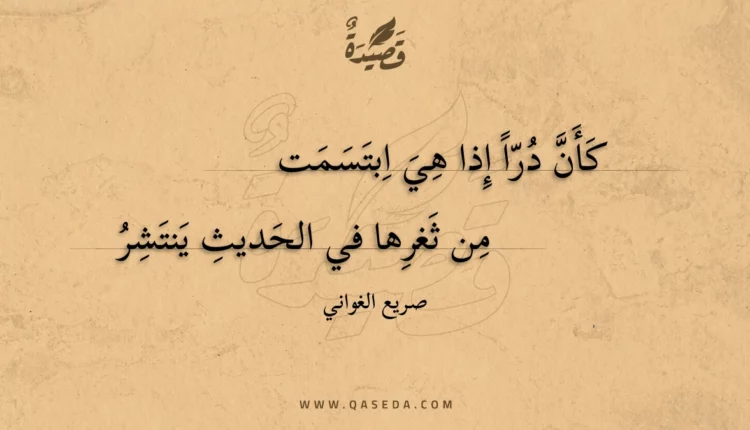 قَصِيْدَةٌ
كَأَنَّ دُرّاً إِذا هِيَ اِبتَسَمَت
مِن ثَغرِها في الحَديثِ يَنتَشِرُ
صريع الغواني
WWW.QASEDA.COM